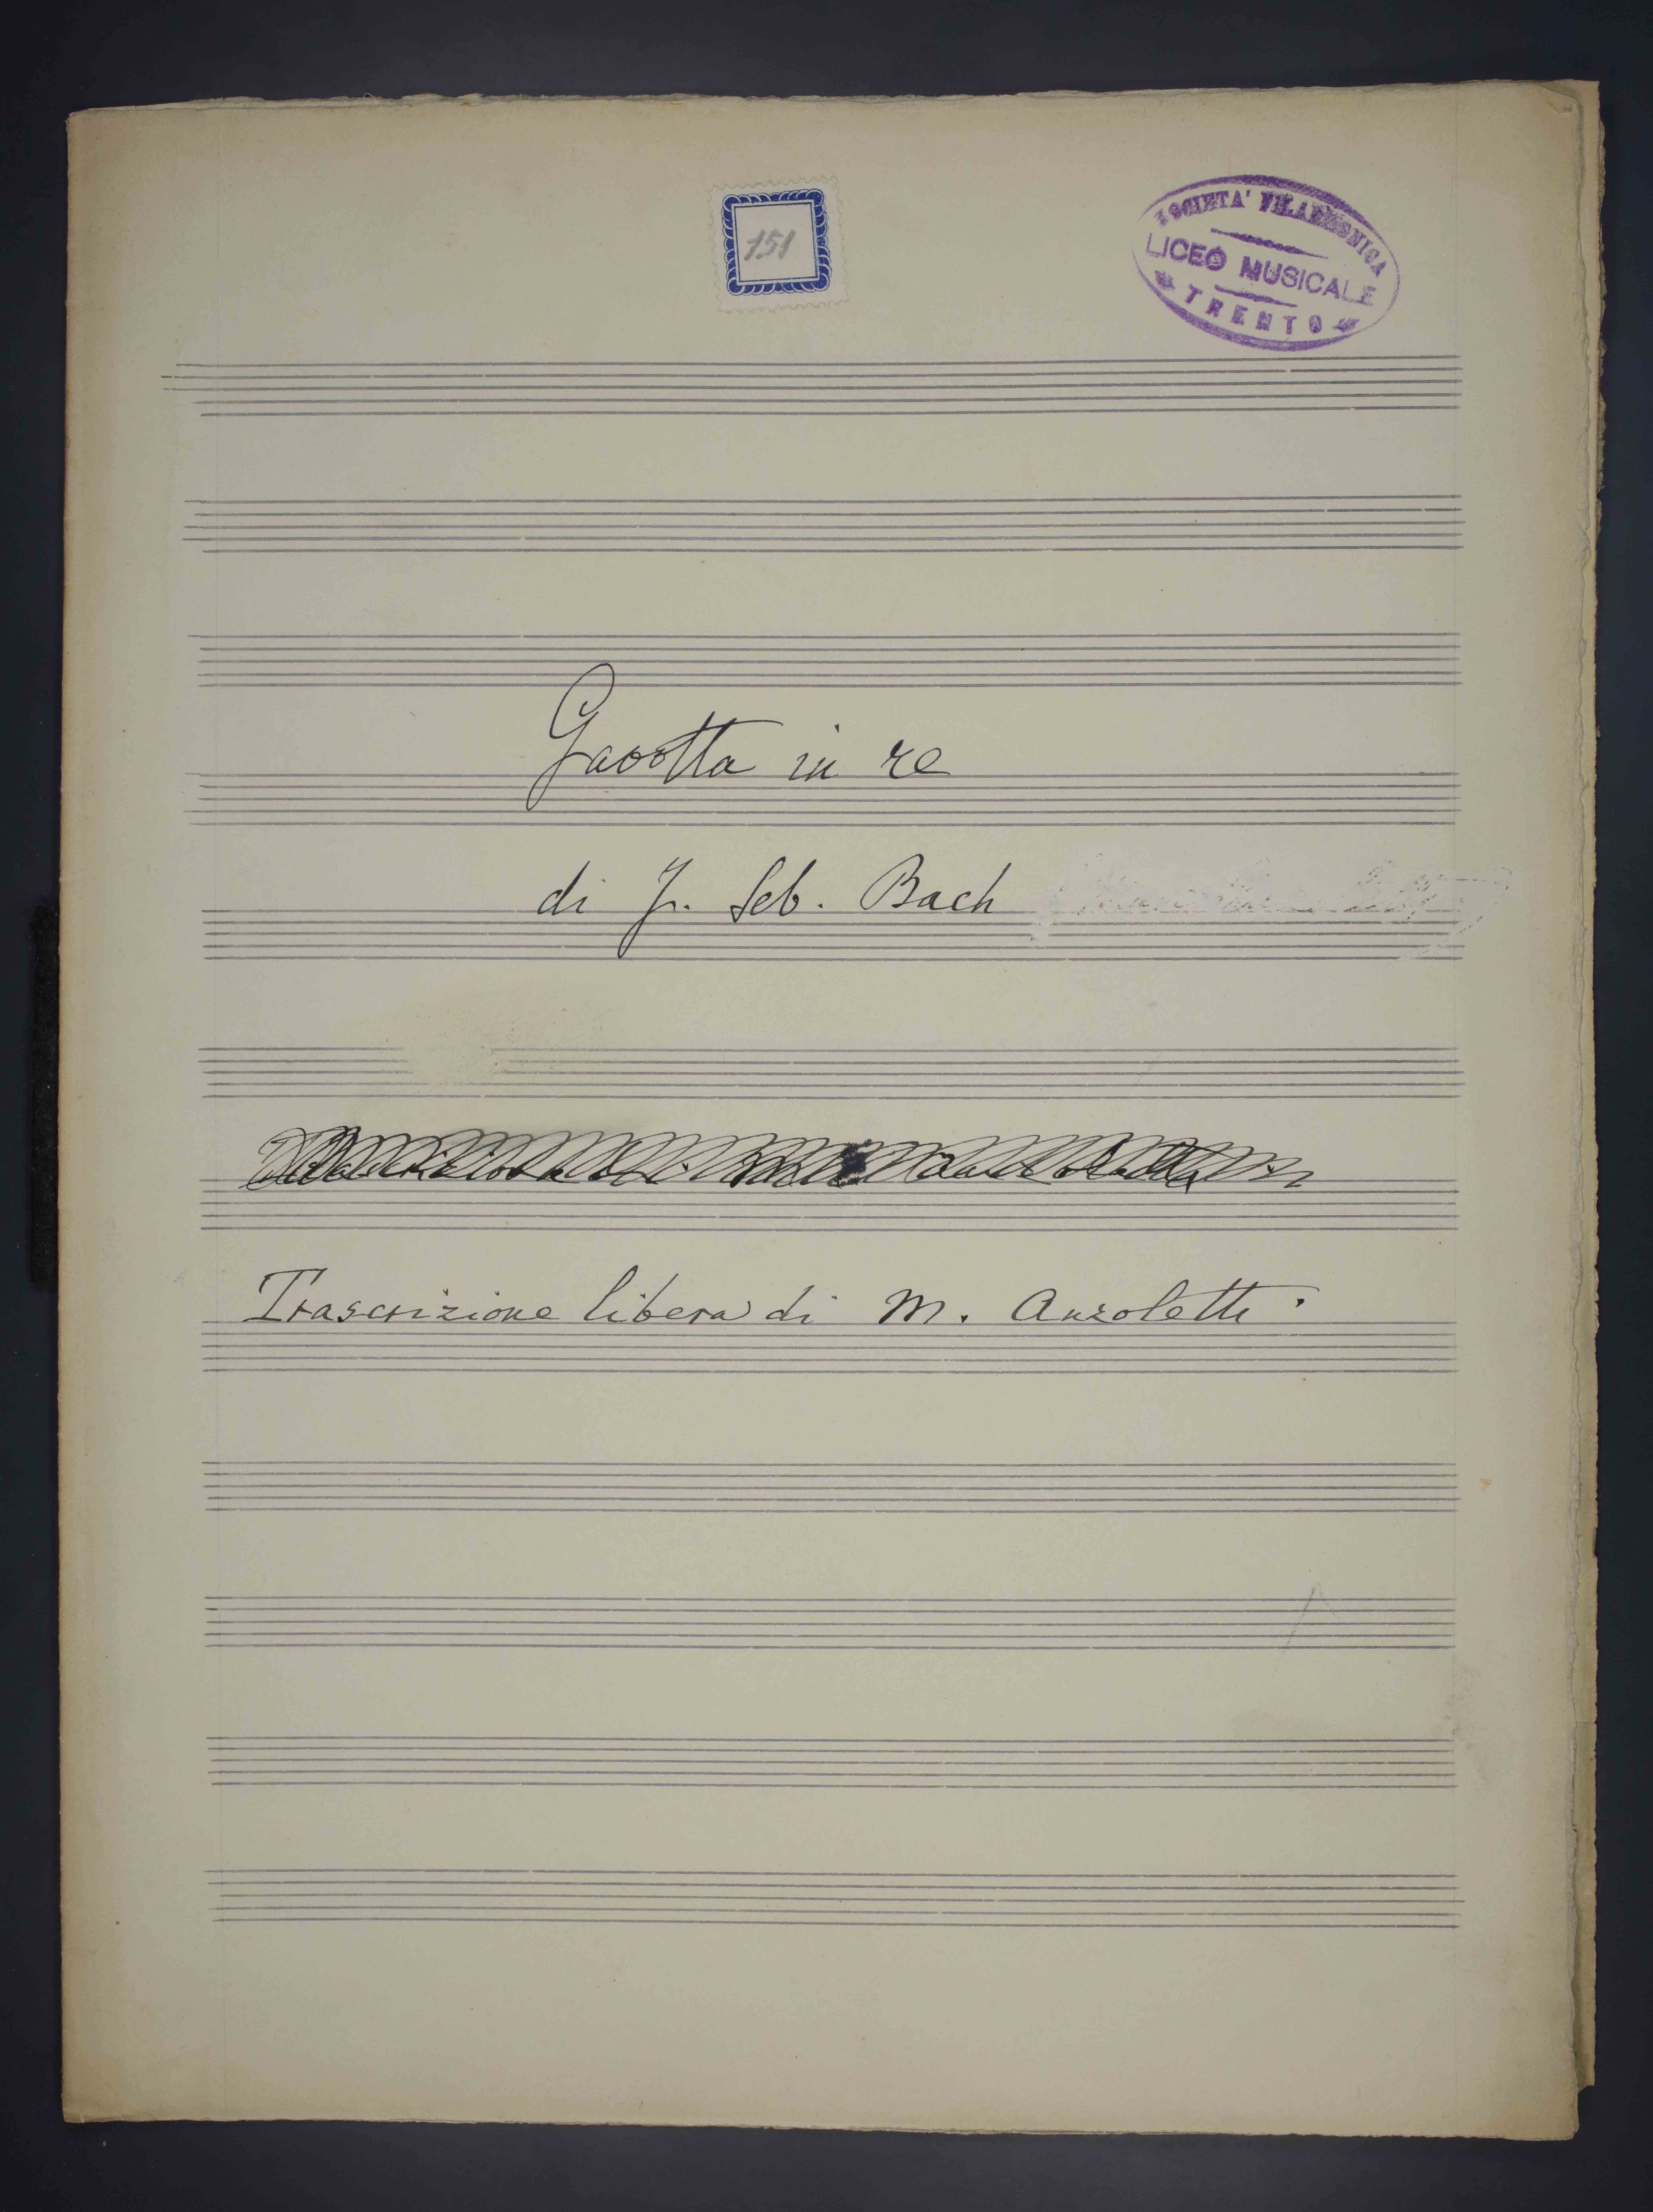 151
SOCIETA' FILARMONICA
LICEO MUSICALE
TRENTO
Gavotta in re
di J. Seb. Bach
Trascrizione libera di M. Anzoletti.